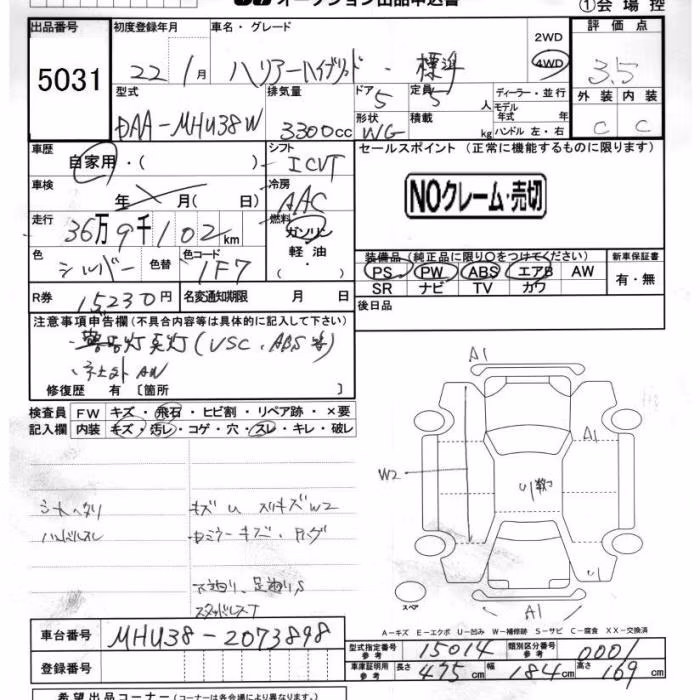 オークション出品申込書
①会場控
出品番号
5031
初度登録年月
22 / 1月
車名・グレード
ハリアーハイブリッド・標準
2WD
4WD
評価点
3.5
型式
DAA-MHU38W
排気量
3300cc
ドア
5
定員
5人
ディーラー・並行
モデル年式 年
形状
WG
積載 kg
ハンドル 左・右
外装 内装
C C
車歴
自家用・( )
シフト
ICVT
セールスポイント (正常に機能するものに限ります)
車検
年 月( 日)
冷房
AAC
NOクレーム・売切
走行
36万9千102km
燃料
ガソリン
軽油
( ・ )
色
シルバー
色替
色コード
1F7
装備品(純正品に限り〇をつけてください)
PS PW ABS エアB AW
SR ナビ TV カワ
新車保証書
有・無
R券
15230円
名変通知期限 月 日
後日品
注意事項申告欄(不具合内容等は具体的に記入して下さい)
灯灯(VSC、ABS等)
・社外AW
修復歴 有〔箇所 〕
検査員
記入欄
FW キズ・飛石・ヒビ割・リペア跡・×要
内装 キズ・汚レ・コゲ・穴・スレ・キレ・破レ
シートヘタリ
ハンドルスレ
キズ U スリキズW2
下廻り、足廻りS
スタッドレスT
A1
A1
W2
U数ヶ
U1
A1
スペア
A-キズ E-エクボ U-凹み W-補修跡 S-サビ C-腐食 XX-交換済
車台番号
MHU38-2073898
登録番号
型式指定番号 参考
15014
類別区分番号 参考
0001
車庫証明用 参考
長さ 475cm
幅 184cm
高さ 169cm
希望出品コーナー(コーナーは各会場により異なります。)